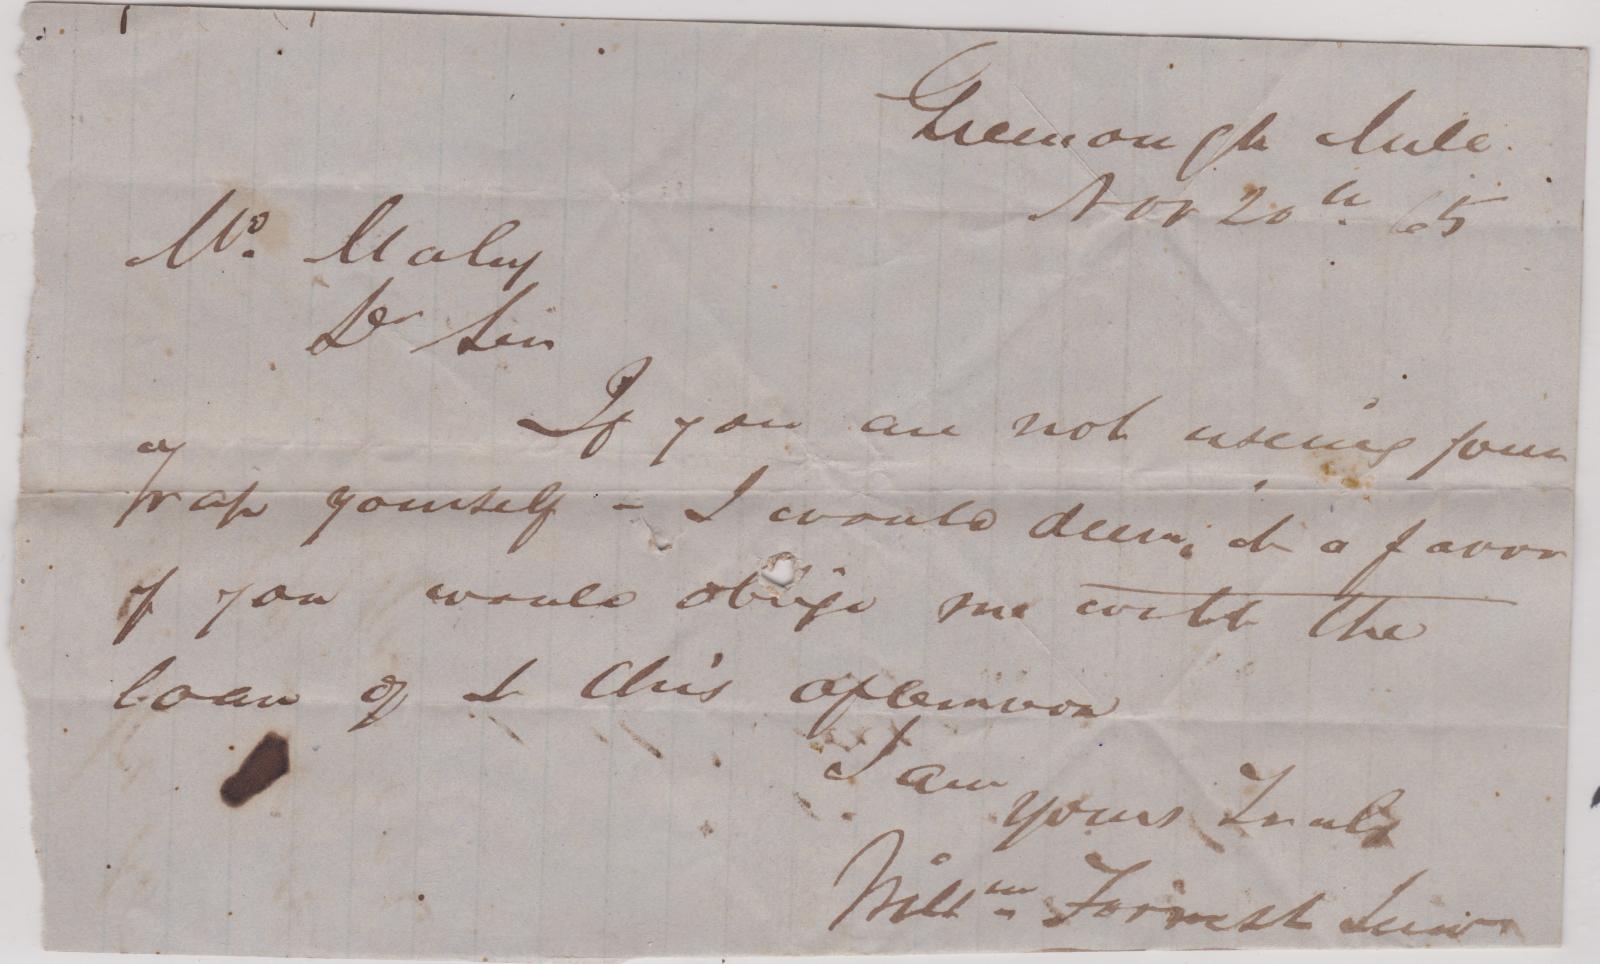 Greenough
Nov 20th 65
Mr. Maley
Dr Sir
If you are not useing your
trap yourself - I would deem it a favor
if you would oblige me with the
loan of it this afternoon
I am
yours Truly
Willm Forrest Junr